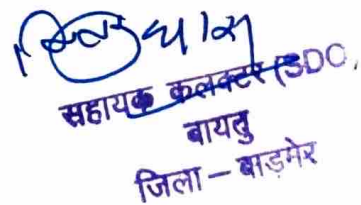 सहायक कलक्टर (SDO,
बायतु
जिला - बाड़मेर